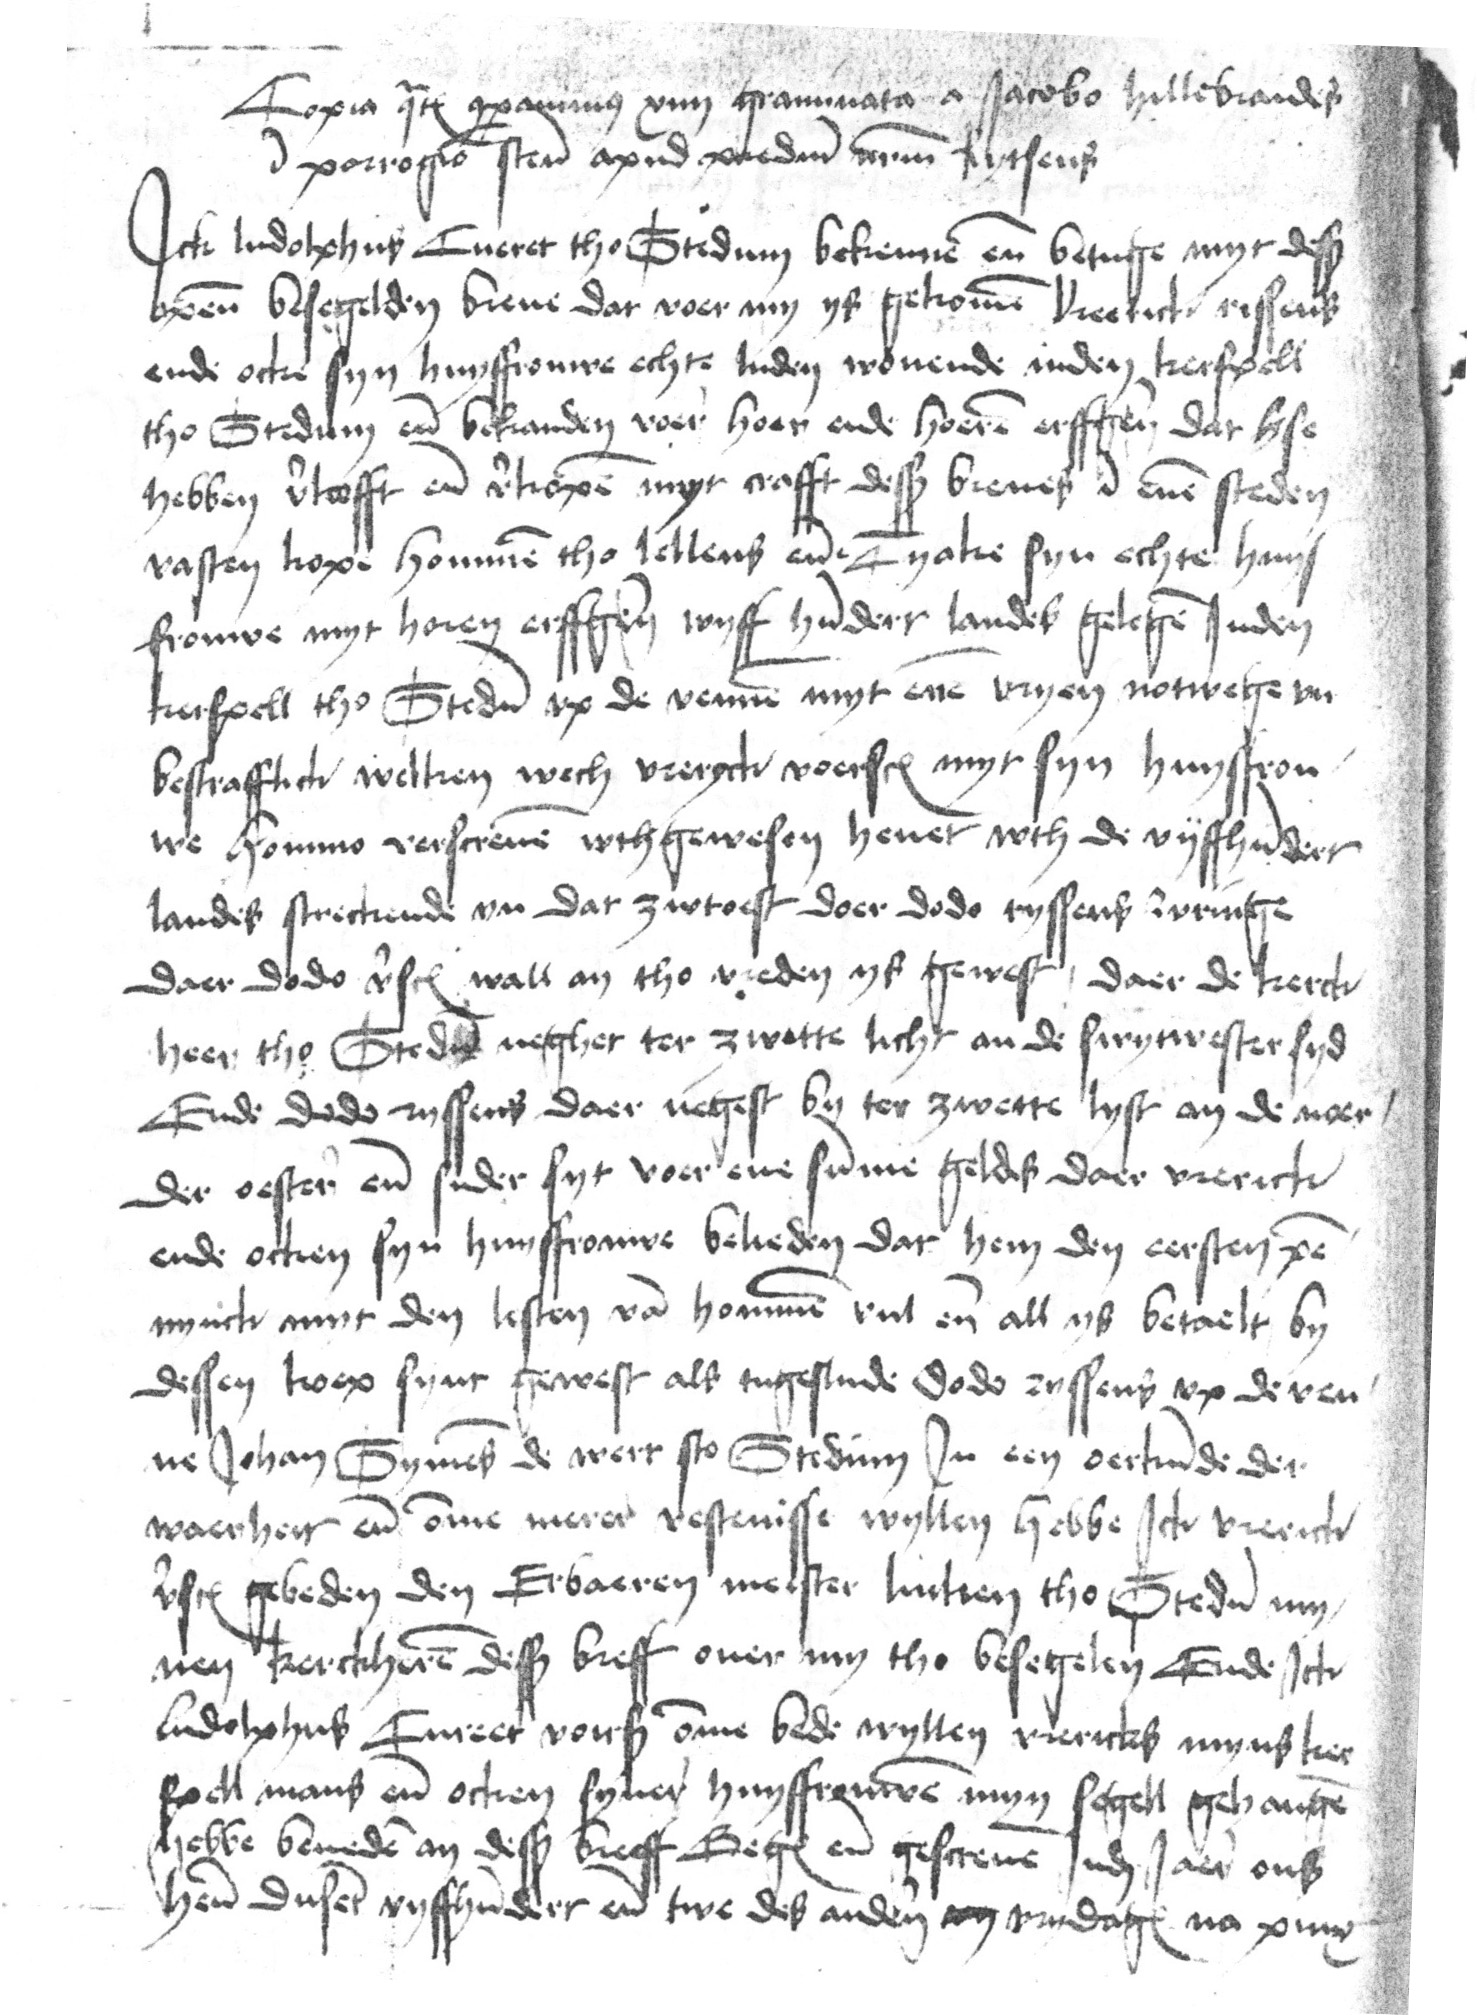 Copia a Jacobo hillebrandes
apud
Ick ludolphus Eueret tho Stedum bekenne en̄ betuge myt dess
opēn besegelden breue dat voer my ys gekomē vrerick rissens
ende ocke syn huysfrouwe echte luden wonende inden kerspell
tho Stedum en̄ bekanden voer hoer ende hoerē erffgen̄ dat hse
hebben v̄kofft en̄ v̄kopē myt crafft dess breues ī enē steden
vasten kope hommē tho lellens en̄ Tyake syn echte huys
frouwe myt horen erffgen̄ vyff hūdert landes gelegē Inden
kerspell tho Stedū vp de vennē myt ene vryen notwege vn
bestrafflick welken wech vrerick voersch myt syn huysfrou
we hommo verscreuē wthgewesen heuet wth de vijffhūdert
landes streckende vn dat zwtoest doer dodo ryssens
daer dodo v̄sch wall an tho vreden ys gewest daer de kerck
heer tho Stedū negher ter zwette licht an de swytwester syd
Ende dodo ryssens daer negest by ter zwette lyst an de noer
der oester en̄ suder syt voer ene sūme geldes daer vrerick
ende ocken syn huysfrouwe belieden dat hem den eersten pē
nynck myt den lesten vā hommē vul en̄ all ys betaelt by
dessen koep synt gewest als tugeslude dodo ryssens vp de ven
ne Johan Symēs de wert to Stedum In een oerkūde der
waerheit en̄ ōme merer vestenisse wyllen hebbe Ick vrerick
v̄sch gebeden den Erbaeren meister luken tho Stedū my
nen kerckherē dess breff ouer my tho besegelen Ende Ick
ludolphus Eueret voirs ōme bede wyllen vrericks myns ker
spell mans en̄ ocken syner huysfrouwē myn segell gehangē
hebbe benedē an dess breff Geg en̄ gescreuē Indē Jaer ons
hen̄ dusēt vyffhūdert en̄ twe des anderen vrydages na